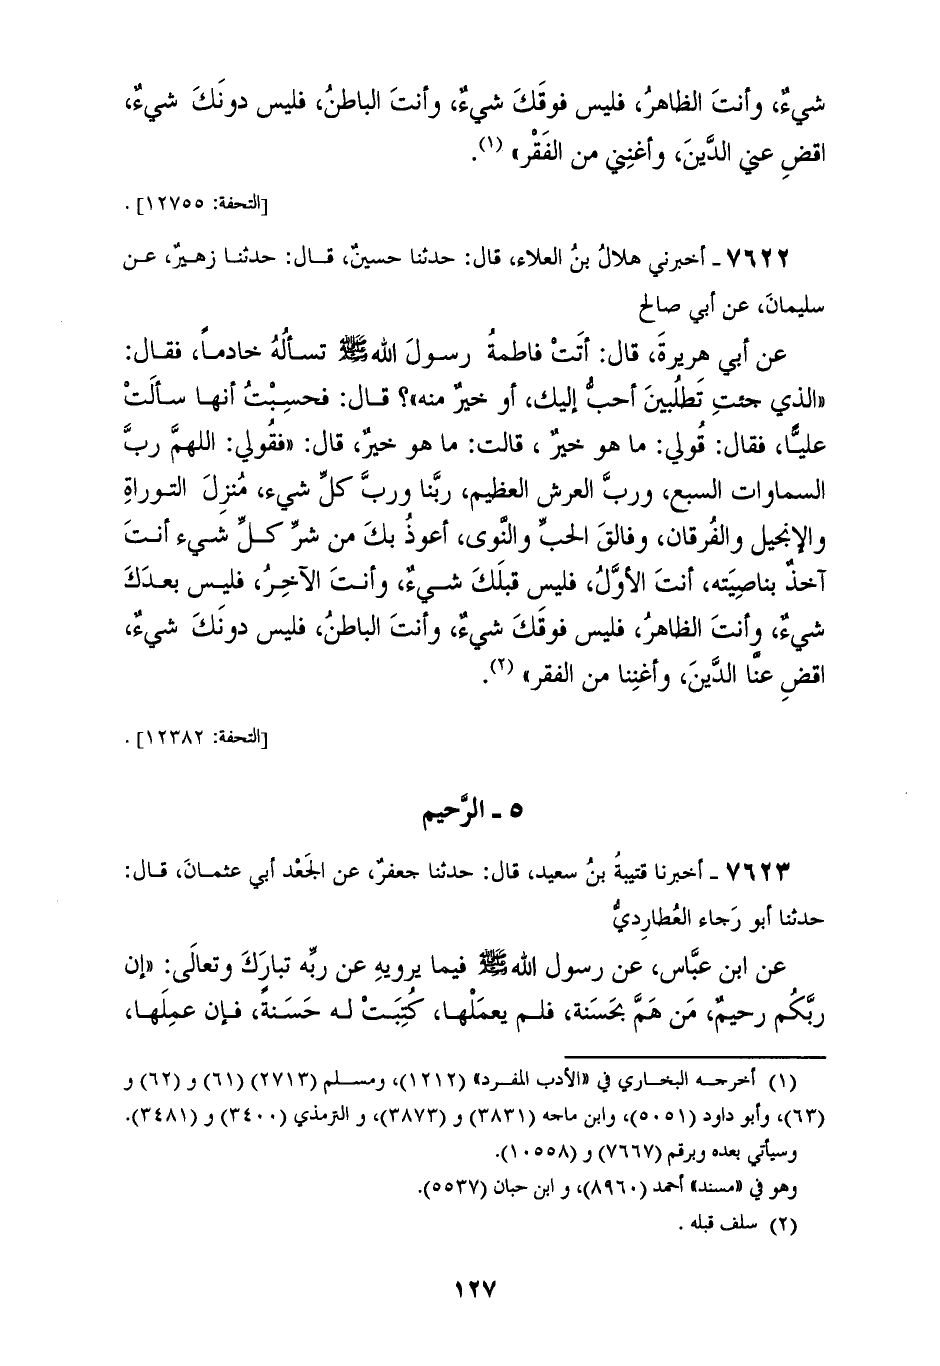 شيءٌ، وأنتَ الظاهرُ، فليس فوقَكَ شيءٌ، وأنتَ الباطنُ، فليس دونَكَ شيءٌ،
اقضِ عني الدَّينَ، وأغنِني من الفَقْر» (١).
[التحفة: ١٢٧٥٥] .
٧٦٢٢ - أخبرني هلالُ بنُ العلاء، قال: حدثنا حسينٌ، قال: حدثنا زهيرٌ، عن
سليمانَ، عن أبي صالح
عن أبي هريرةَ، قال: أتَتْ فاطمةُ رسولَ الله ﷺ تسألُهُ خادماً، فقال:
«الذي جئتِ تَطلُبينَ أحبُّ إليك، أو خيرٌ منه»؟ قال: فحسِبْتُ أنها سألَتْ
عليًّا، فقال: قُولي: ما هو خيرٌ ، قالت: ما هو خيرٌ، قال: «فقُولي: اللهمَّ ربَّ
السماوات السبع، وربَّ العرش العظيم، ربَّنا وربَّ كلِّ شيء، مُنزِلَ التوراةِ
والإنجيل والفُرقان، وفالقَ الحبِّ والنَّوى، أعوذُ بكَ من شرِّ كلِّ شيء أنتَ
آخذٌ بناصِيَته، أنتَ الأوَّلُ، فليس قبلَكَ شيءٌ، وأنتَ الآخِرُ، فليس بعدَكَ
شيءٌ، وأنتَ الظاهرُ، فليس فوقَكَ شيءٌ، وأنتَ الباطنُ، فليس دونَكَ شيءٌ،
اقضِ عنَّا الدَّينَ، وأغنِنا من الفقر» (٢).
[التحفة: ١٢٣٨٢] .
٥ - الرَّحيم
٧٦٢٣ - أخبرنا قتيبةُ بنُ سعيد، قال: حدثنا جعفرٌ، عن الجَعْد أبي عثمانَ، قال:
حدثنا أبو رَجاء العُطارِديُّ
عن ابن عبَّاس، عن رسول الله ﷺ فيما يرويهِ عن ربِّه تبارَكَ وتعالَى: «إن
ربَّكُم رحيمٌ، مَن هَمَّ بحَسَنة، فلم يعمَلْها، كُتِبَتْ له حَسَنةً، فإن عمِلَها،
(١) أخرجه البخاري في «الأدب المفرد» (١٢١٢)، ومسلم (٢٧١٣) (٦١) و (٦٢) و
(٦٣)، وأبو داود (٥٠٥١)، وابن ماجه (٣٨٣١) و (٣٨٧٣)، و الترمذي (٣٤٠٠) و (٣٤٨١).
وسيأتي بعده وبرقم (٧٦٦٧) و (١٠٥٥٨).
وهو في «مسند» أحمد (٨٩٦٠)، و ابن حبان (٥٥٣٧).
(٢) سلف قبله .
١٢٧